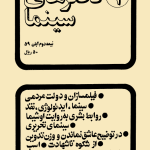 ۱
دفترهای
سینما
نیمه دوم آبان ۵۹
۵۰ ریال
فیلمسازان و دولت مردمی
سینما، ایدئولوژی، نقد
روابط بشری به روایت اوشیما
سینمای تجریزی
در توضیح عاشق نماندن و وزن تدوین
از شکوه تا شهادت اسب